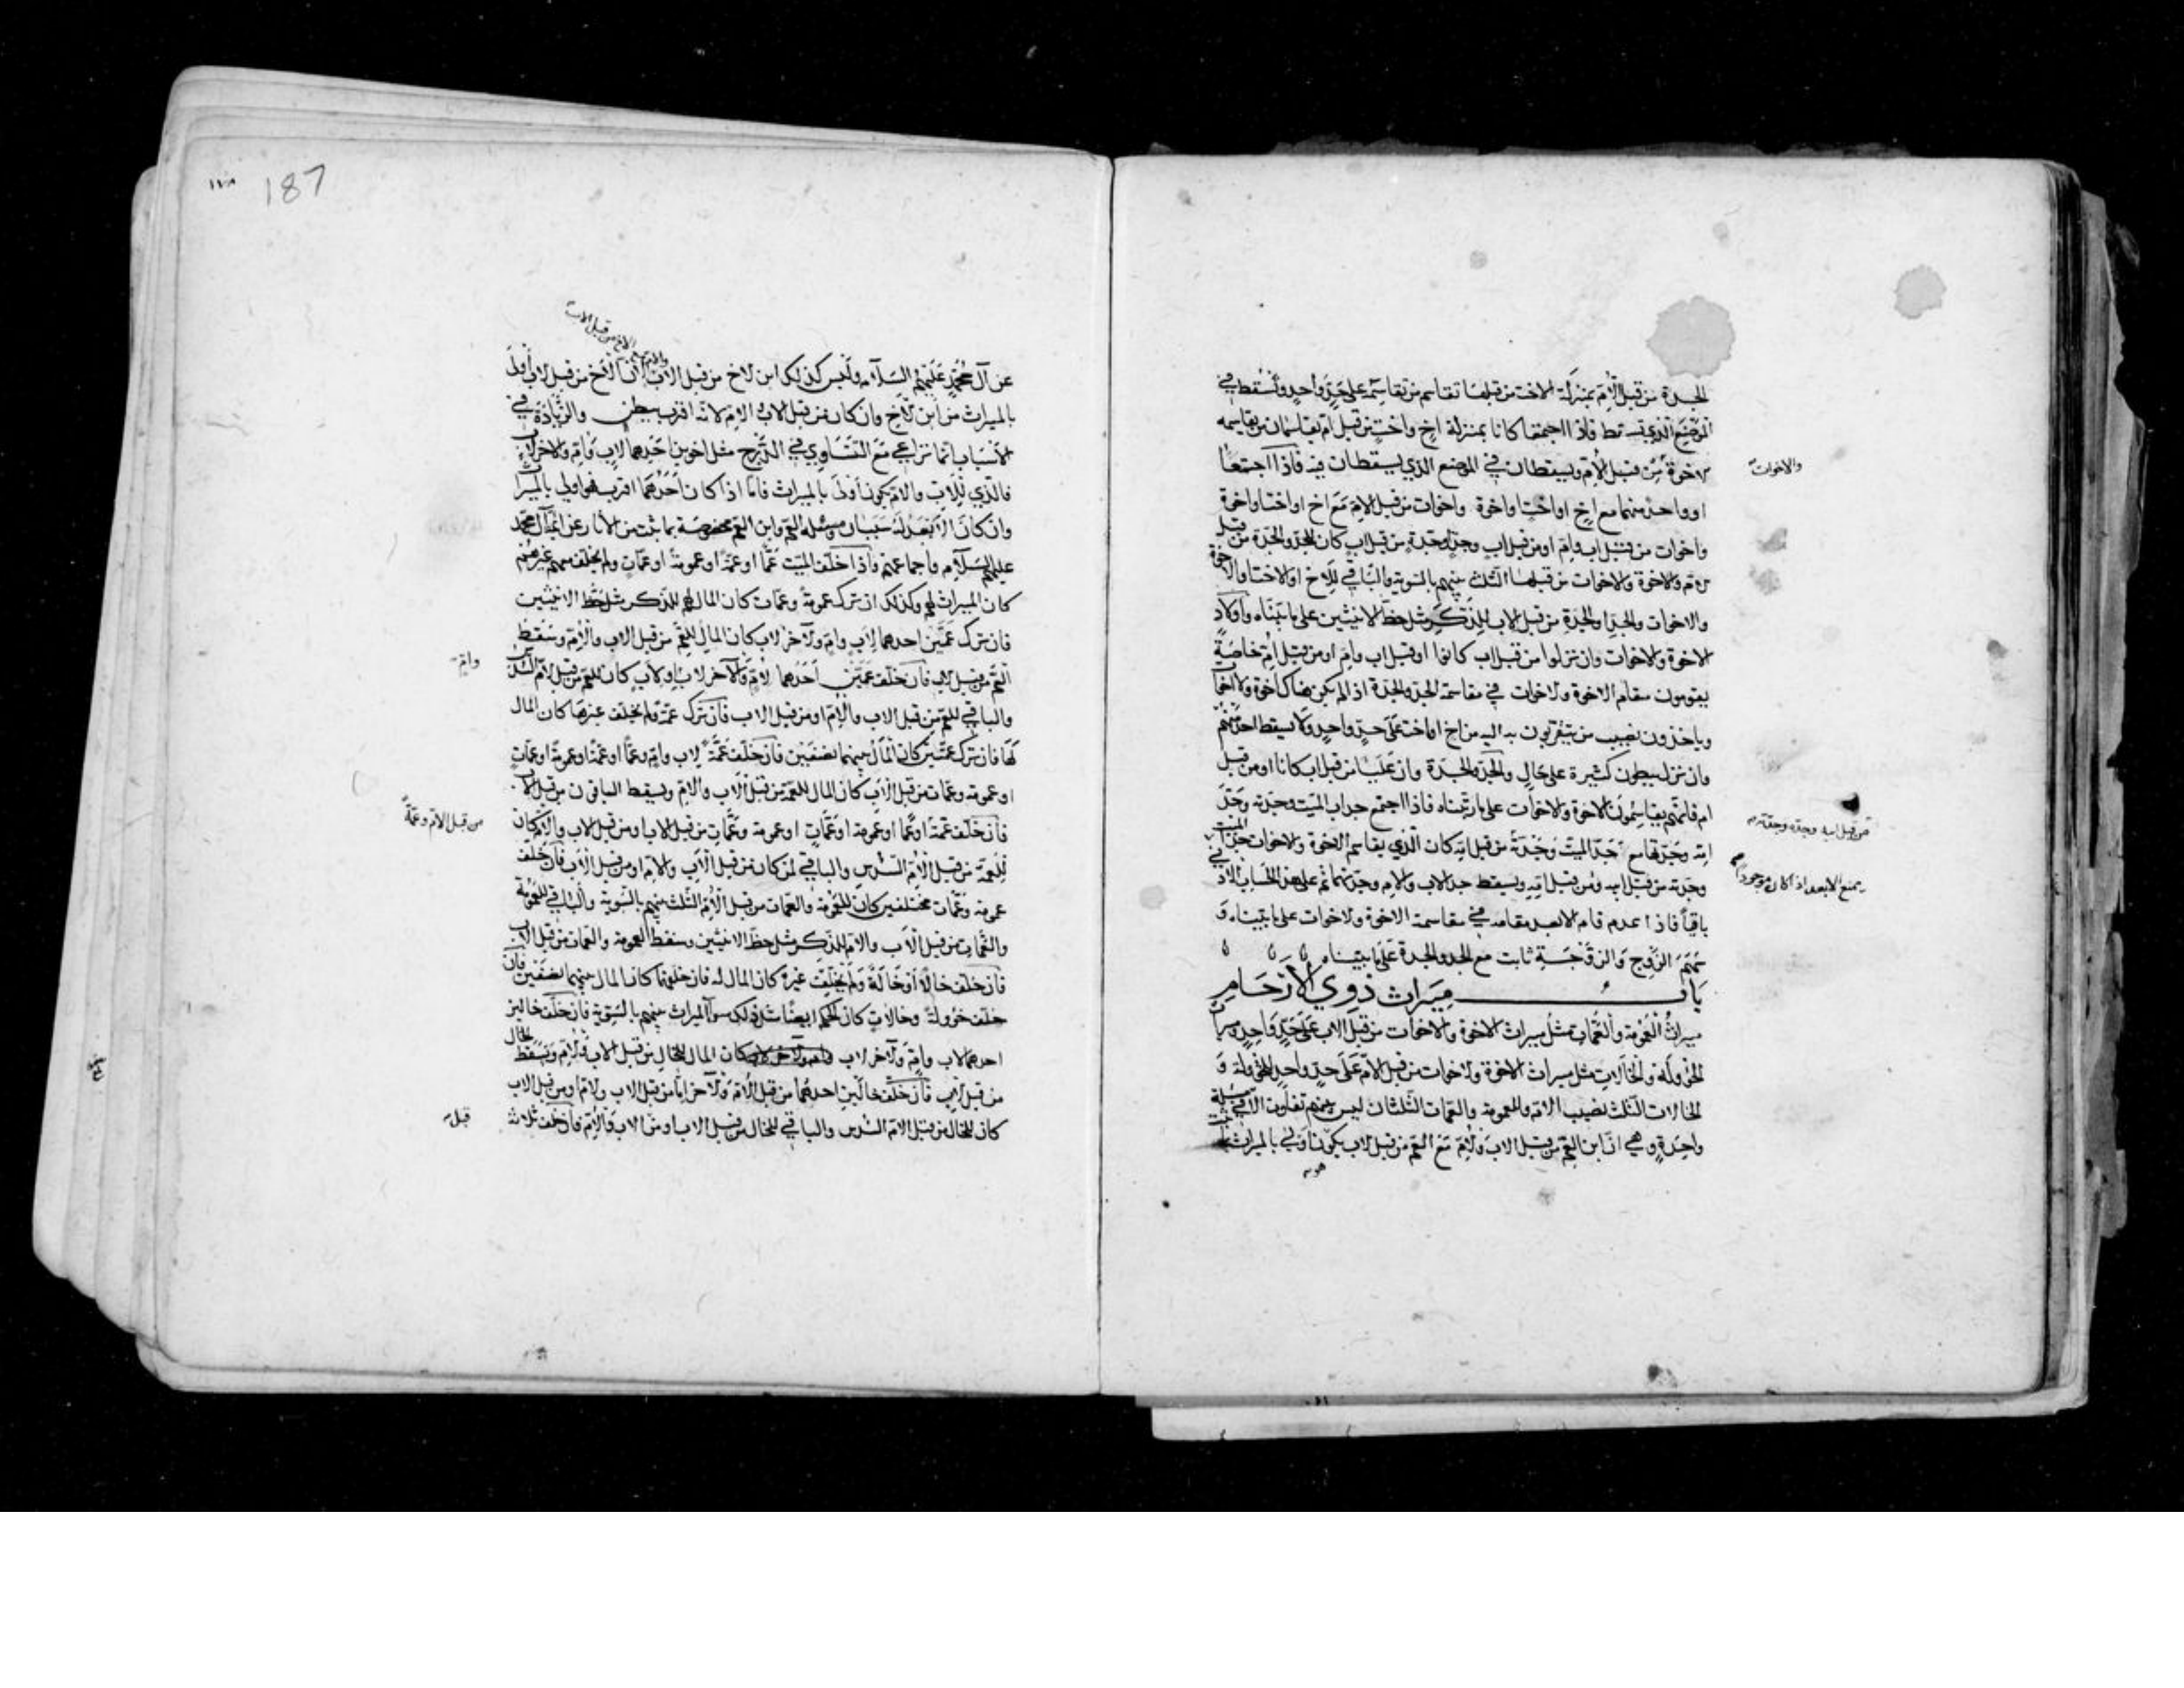 الجدة من قبل الأم بمنزلة الاخت من قبلها تقاسم من تقاسمه على حد واحد وتسقط في
الموضع الذي تسقط فاذا اجتمعا كانا بمنزلة اخ واخت من قبل ام يقاسمان من يقاسمه
الاخوة من قبل الأم ويسقطان في الموضع الذي يسقطان فيه فاذا اجتمعا
والاخوات
او واحد منهما مع اخ او اخت او اخوة واخوات من قبل الام مع اخ او اخت او اخوة
واخوات من قبل اب وام او من قبل اب وجد وجدة من قبل اب كان للجد والجدة من قبل
الام والاخوة والاخوات من قبلها الثلث بينهم بالسوية والباقي للاخ او الاخت او الاخوة
والاخوات والجد او الجدة من قبل الاب للذكر مثل حظ الانثيين على ما بيناه واولاد
الاخوة والاخوات وان نزلوا من قبل اب كانوا او قبل اب وام او من قبل ام خاصة
يقومون مقام الاخوة والاخوات في مقاسمة الجد والجدة اذا لم يكن هناك اخوة ولا اخوات
وياخذون نصيب من يتقربون به اليه من اخ او اخت على حد واحد ولا يسقط احد منهم
وان نزل ببطون كثيرة على حال والجد والجدة وان عليا من قبل اب كانا او من قبل
ام فانهم يقاسمون الاخوة والاخوات على ما رتبناه فاذا اجتمع جد اب الميت وجدته وجد
من قبل ابيه وجده وجدته
امه وجدتها مع جد الميت وجدة من قبل ابيه كان الذي يقاسم الاخوة والاخوات جد الميت
وجدته من قبل ابيه ومن قبل امه ويسقط جد الاب والام وجدتهما ثم على هذا الحساب الادنى
يمنع الابعد اذا كان موجودا
باقيا فاذا عدم قام الابعد مقامه في مقاسمة الاخوة والاخوات على ما بيناه و
سهم الزوج والزوجة ثابت مع الجد والجدة على ما بيناه
باب ميراث ذوي الأرحام
ميراث العمومة والعمات مثل ميراث الاخوة والاخوات من قبل الاب على حد واحد وميراث
الخؤولة والخالات مثل ميراث الاخوة والاخوات من قبل الأم على حد واحد للخؤولة و
الخالات الثلث نصيب الام والعمومة والعمات الثلثان ليس بينهم تفاوت الا في مسئلة
واحدة وهي ان ابن العم من قبل الاب والام مع العم من قبل الاب يكون اولى بالميراث
187
الاخ من قبل الاب
عن آل محمد عليهم السلام وليس كذلك ابن الاخ من قبل الاب لان الاخ من قبل الاب أولى
بالميراث من ابن الاخ وان كان من قبل الاب والام لانه اقرب ببطن والزيادة في
الأنساب انما تراعي مع التساوي في الدرج مثل اخوين احدهما لاب وام والاخر لاب
فالذي للاب والام يكون أولى بالميراث فاما اذا كان أحدهما اقرب فهو اولى بالميراث
وان كان الأبعد له سببان ومسئلة العم وابن العم مخصوصة بما ثبت من الاثار عن ائمة آل محمد
عليهم السلام واجماعهم فاذا خلف الميت عما او عمة او عمومة او عمات ولم يخلف معهم غيرهم
كان الميراث لهم وكذلك ان ترك عمومة وعمات كان المال لهم للذكر مثل حظ الانثيين
فان ترك عمين احدهما لاب وام والآخر لاب كان المال للعم من قبل الاب والأم وسقط
العم من قبل الاب فان خلف عمين أحدهما لأم والآخر لاب او لاب كان للعم من قبل الام السدس
وام
والباقي للعم من قبل الاب والام او من قبل الاب فان ترك عمة ولم يخلف غيرها كان المال
لها فان ترك عمتين كان المال بينهما نصفين فان خلف عمة لاب وام وعما او عمة او عمومة او عمات
او عمومة وعمات من قبل الاب كان المال للعمة من قبل الاب والام ويسقط الباقون من قبل الاب
فان خلف عمة او عما او عمومة او عمات او عمومة وعمات من قبل الاب او من قبل الاب والام كان
من قبل الام وعمة
للعمة من قبل الأم السدس والباقي لمن كان من قبل الاب والام او من قبل الاب فان خلف
عمومة وعمات مختلفين كان للعمومة والعمات من قبل الأم الثلث بينهم بالسوية والباقي للعمومة
والعمات من قبل الاب والام للذكر مثل حظ الانثيين وسقط العمومة والعمات من قبل الاب
فان خلف خالا او خالة ولم يخلف غيره كان المال له فان خلفهما كان المال بينهما نصفين فان
خلف خؤولة وخالات كان الحكم ايضا مثل ذلك سوآ الميراث بينهم بالسوية فان خلف خالين
احدهما لاب وام والآخر لاب كان المال للخال من قبل الاب والام وسقط الخال
من قبل الاب فان خلف خالين احدهما من قبل الأم والآخر اما من قبل الاب والام او من قبل الاب
كان للخال من قبل الام السدس والباقي للخال من قبل الاب او من الاب والام فان خلف ثلاثة
قبل